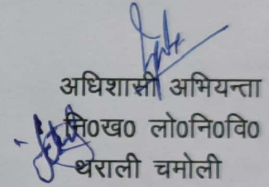 अधिशासी अभियन्ता
नि०ख० लो०नि०वि०
थराली चमोली